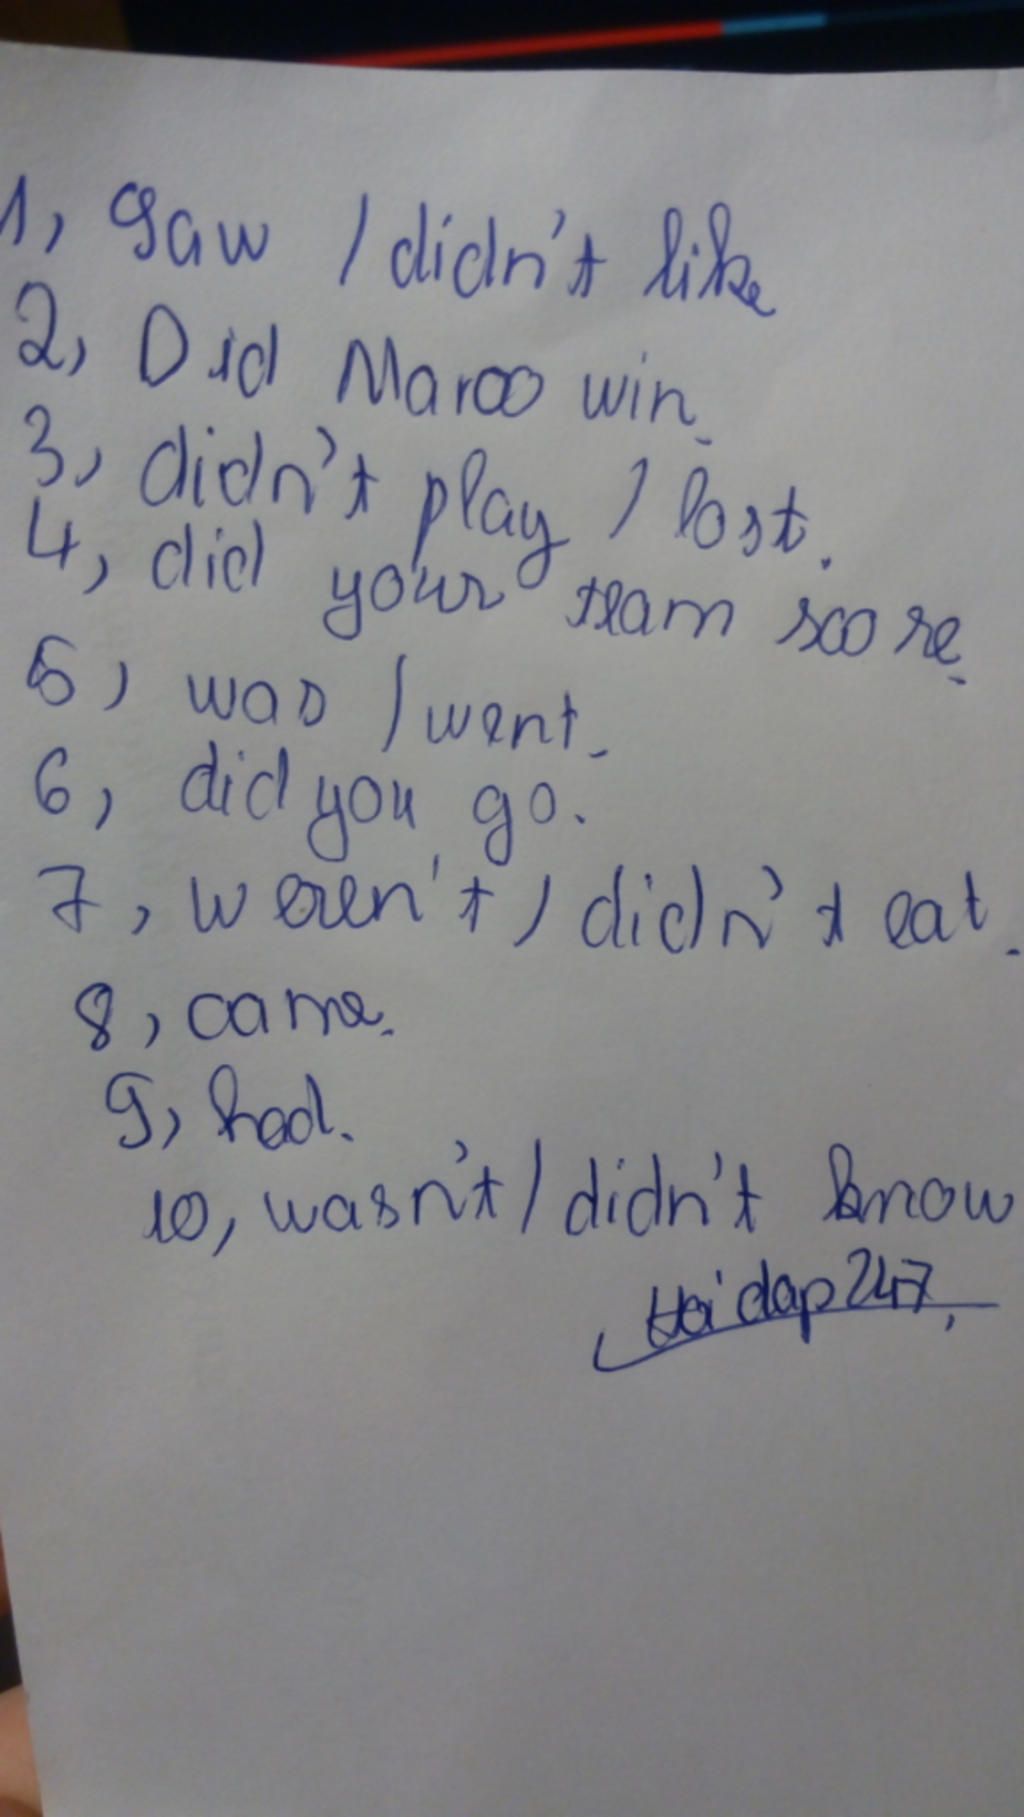 1, saw / didn't like
2, Did Marco win.
3, didn't play / lost.
4, did your team score.
5, was / went.
6, did you go.
7, weren't / didn't eat.
8, came.
9, had.
10, wasn't / didn't know
Hoidap247,